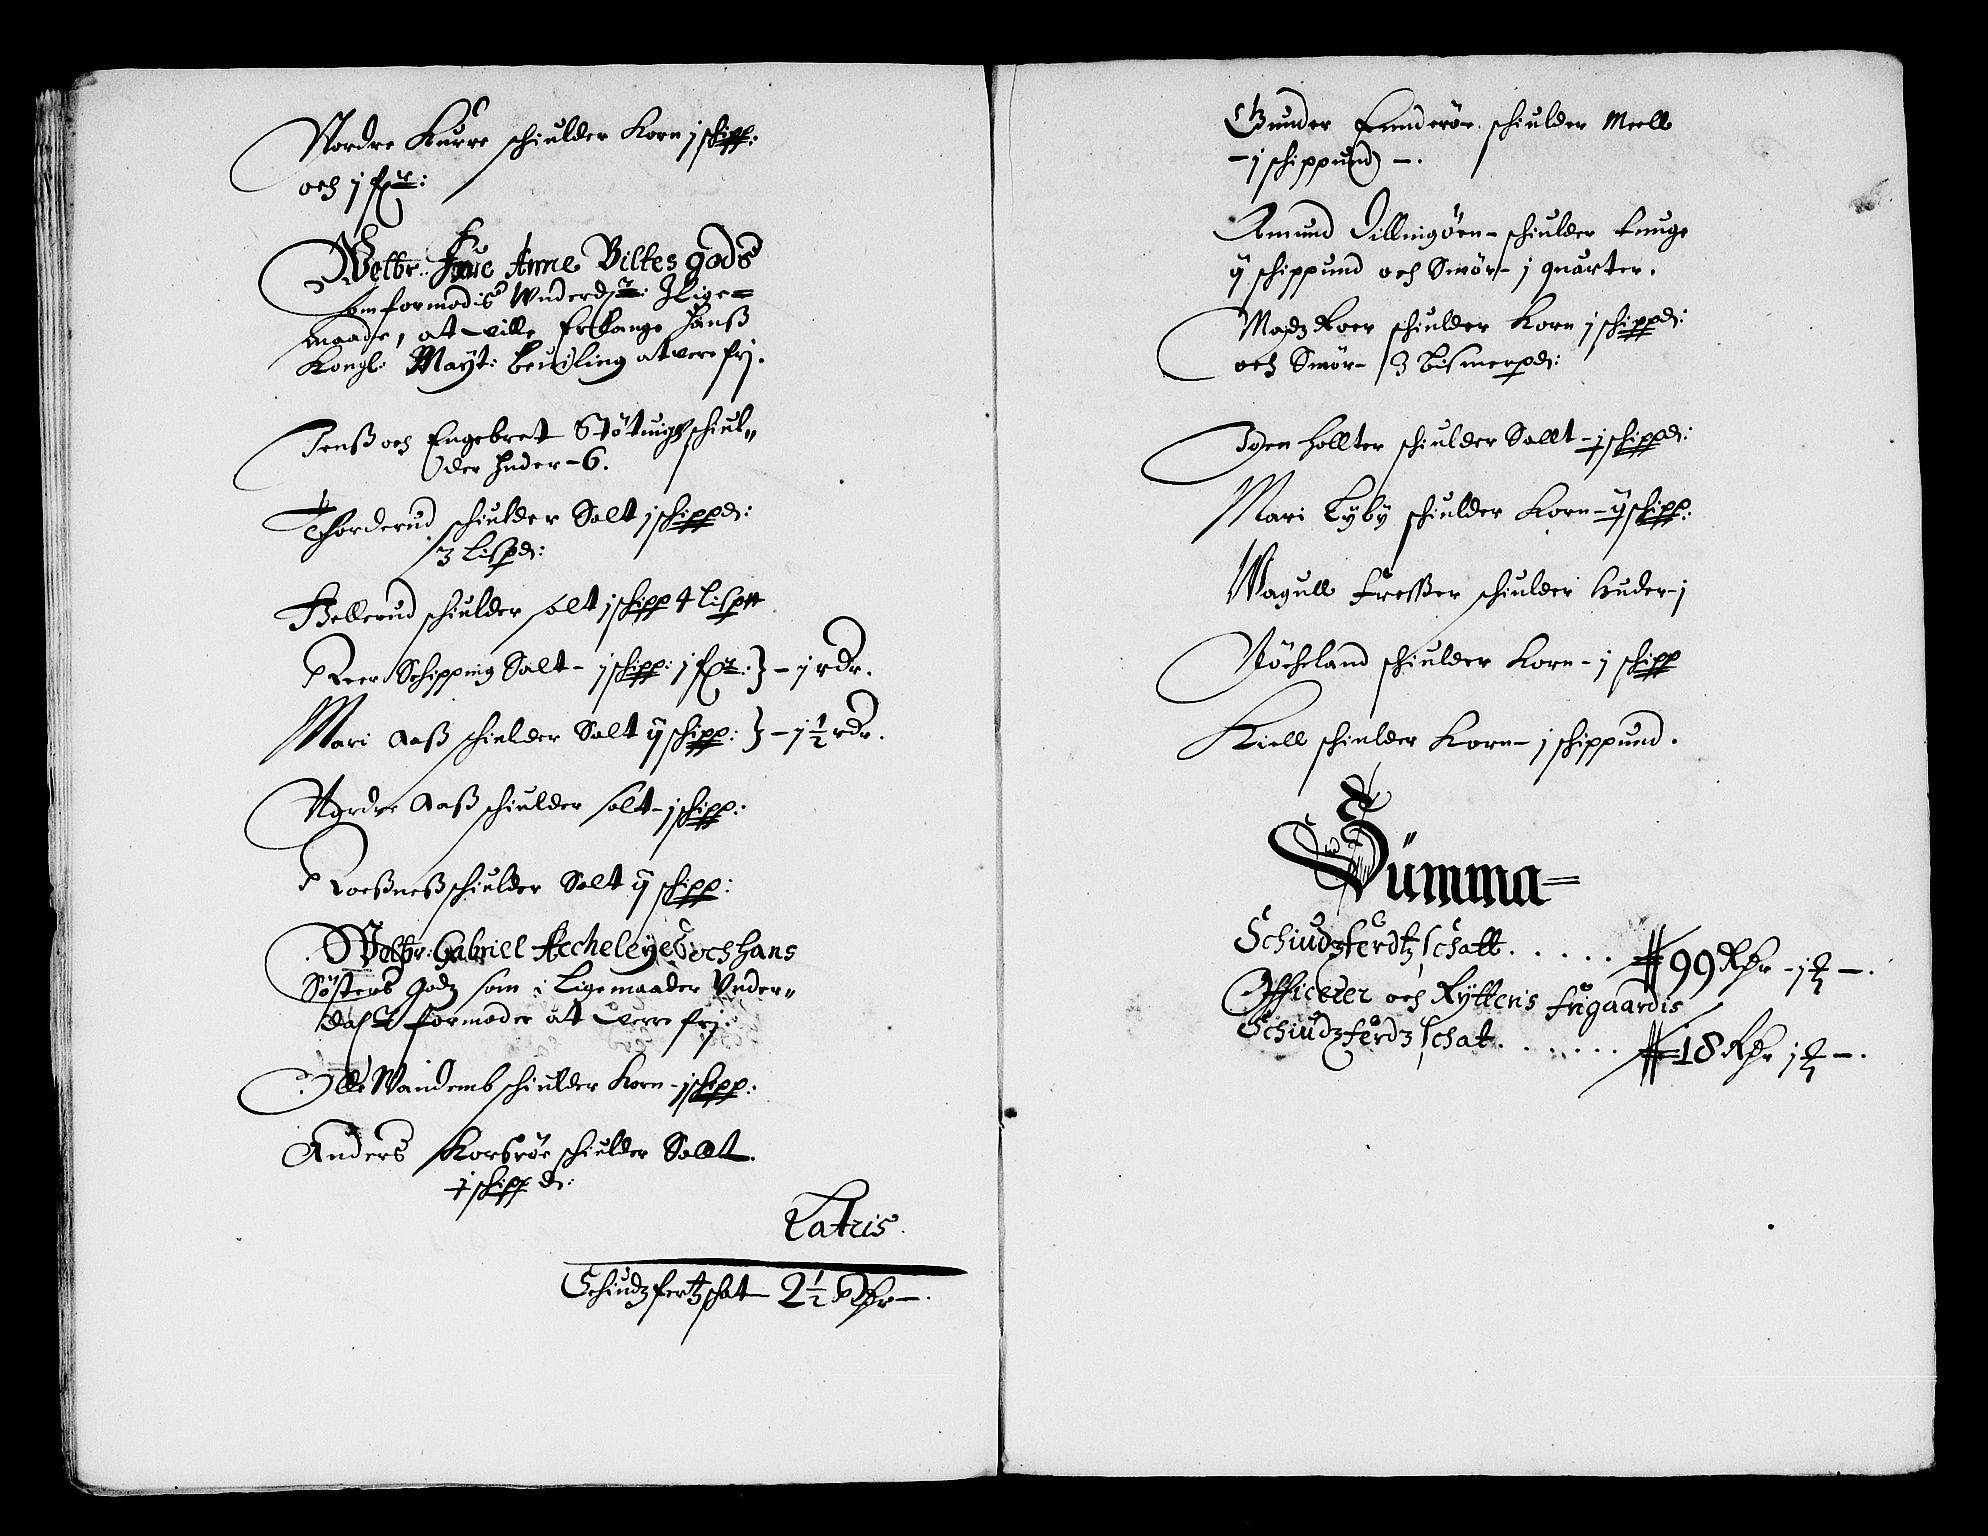 Nordre Kurre schiulder Korn j schipp:
och j fr:
Welbr: Frue Anne Bilkes gods
som formodis Wnderd: I lige=
maade, at ville Erlange Hanß
Kongl: Mayt: beuilling at vere frj.
Jenß och Engebret Stötuigh schiul„
der Huder - 6.
Thorderud schiulder Salt j schippd:
3 Lispd:
Hellerud schiulder salt j schipp 4 Lisp
Leer Schipping Salt - j schipp: j fr: } - j rdr.
Mari Aaß schiulder Salt ij schipp: } - j ½ rdr.
Nordre Aaß schiulder salt - j schipp:
Roeßneß schiulder Salt ij schipp:
Welbr: Gabriel Acheleyes och hans
Søsters Godz som i Ligemaader Vnder„
formoder at verre frj.
Olle Wandemb schiulder Korn - j schipp:
Anders Korsröe schiulder Sallt
j schippd:
Latris
Schiudzfertz schat - 2½ Rdr -.
Gunder schiulder Meell
- j schippund -.
Amund Dillingöen - schiulder Tunge
ij schippund och Smör - j quarter.
Madz Roer schiulder Korn j schippd:
och Smör - 3 Bismerpd:
Igen Hollter schiulder Sallt - j schippd:
Mari Lyby schiulder Korn - ij schipp:
Wagull Freßer schiulder Huder - j
Röcheland schiulder Korn - j schipp
Kiell schiulder Korn - j schippund.
Sümma =
Schiudzferdtz schatt. . . . . . 99 Rdr - j ₰ -.
Officerer och Ryttenis frigaardis
Schiudzferdz schat. . . . . . . 18 Rdr j ₰ -.